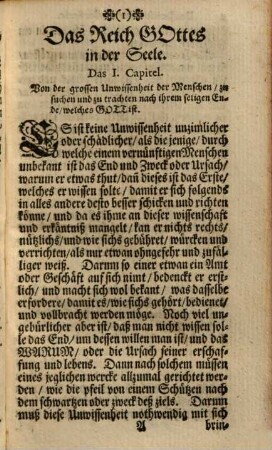 (1)
Das Reich GOttes
in der Seele.
Das I. Capitel.
Von der grossen Unwissenheit der Menschen / zu
suchen und zu trachten nach ihrem seligen En-
de / welches GOTT ist.
ES ist keine Unwissenheit unzimlicher
oder schädlicher / als die jenige / durch
welche einem vernünftigen Menschen
unbekant ist das End und Zweck oder Ursach /
warum er etwas thut / dañ dieses ist das Erste /
welches er wissen solte / damit er sich folgends
in alles andere desto besser schicken und richten
könne / und da es ihme an dieser wissenschaft
und erkäntniß mangelt / kan er nichts rechts /
nützlichs / und wie sichs gebühret / würcken und
verrichten / als nur etwan ohngefehr und zufäl-
liger weiß. Darum so einer etwan ein Amt
oder Geschäft auf sich nimt / bedenckt er erst-
lich / und macht sich wol bekant / was dasselbe
erfordere / damit es / wie sichs gehört / bedienet
und vollbracht werden möge. Noch viel un-
gebürlicher aber ist / daß man nicht wissen sol-
le das End / um dessen willen man ist / und das
WARUM / oder die Ursach seiner erschaf-
fung und lebens. Dann nach solchem müssen
eines jeglichen wercke allzumal gerichtet wer-
den / wie die pfeil von einem Schützen nach
dem schwartzen oder zweck deß ziels. Darum
muß diese Unwissenheit nothwendig mit sich
A brin-